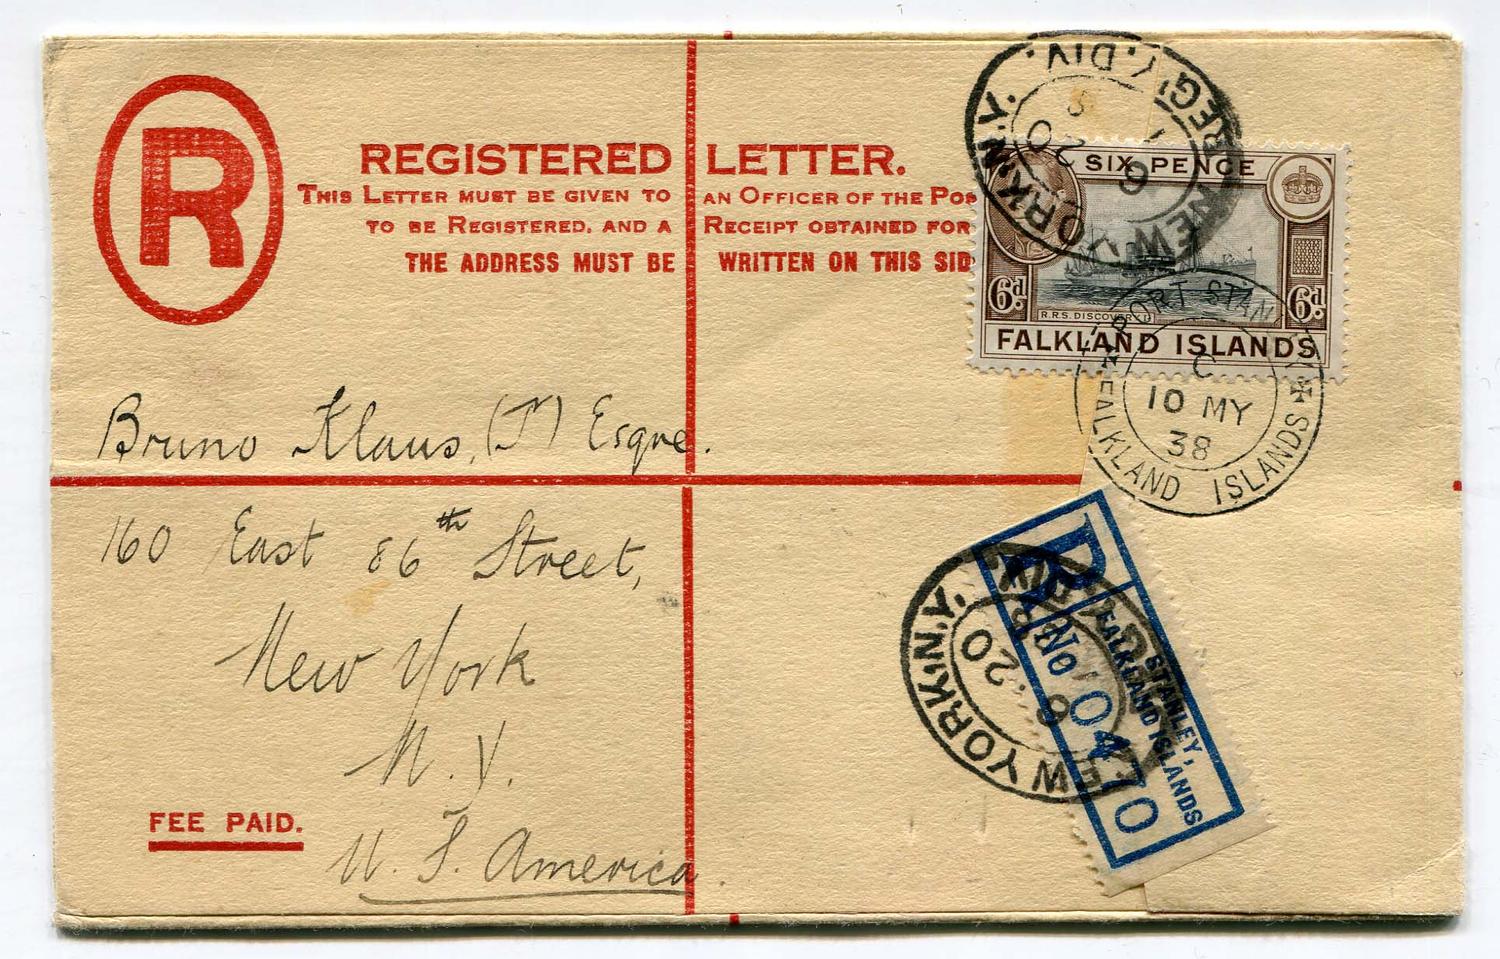 R
REGISTERED LETTER.
THIS LETTER MUST BE GIVEN TO AN OFFICER OF THE POS
TO BE REGISTERED, AND A RECEIPT OBTAINED FOR
THE ADDRESS MUST BE WRITTEN ON THIS SID
SIX PENCE
6d. 6d.
R.R.S. DISCOVERY II
FALKLAND ISLANDS
NEW YORK, N.Y.
REG'Y. DIV.
6 20
PORT STAN
C
10 MY
38
FALKLAND ISLANDS
Bruno Klaus, (Jr) Esqre.
160 East 86th Street,
New York
N. Y.
U. S. America.
FEE PAID.
R
STANLEY,
FALKLAND ISLANDS
No 0470
NEW YORK, N.Y.
6 20